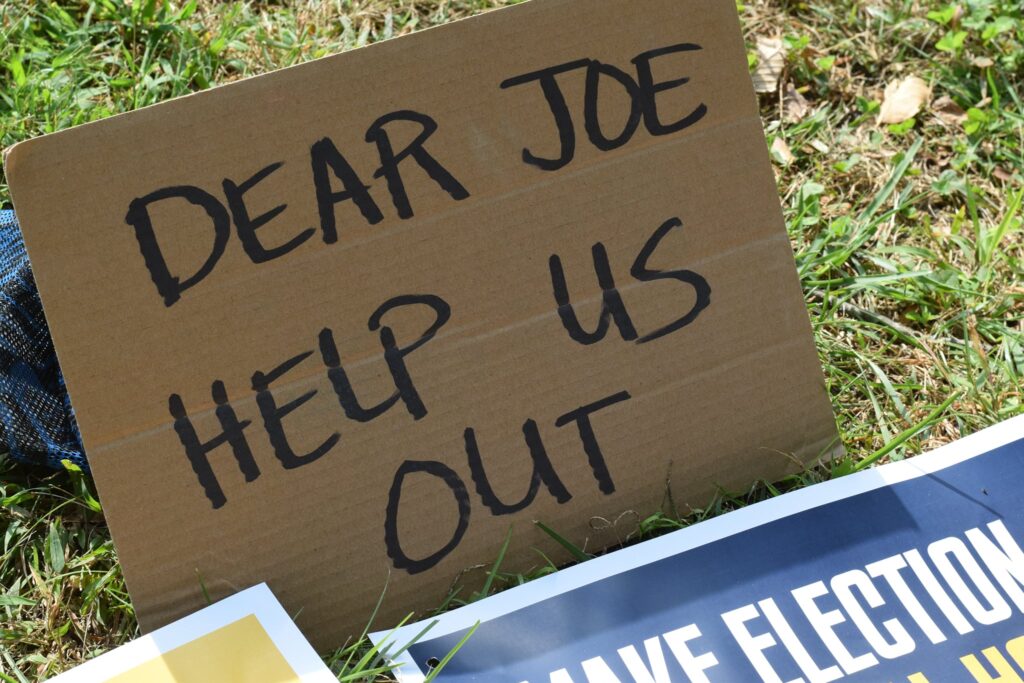 DEAR JOE
HELP US
OUT
MAKE ELECTION